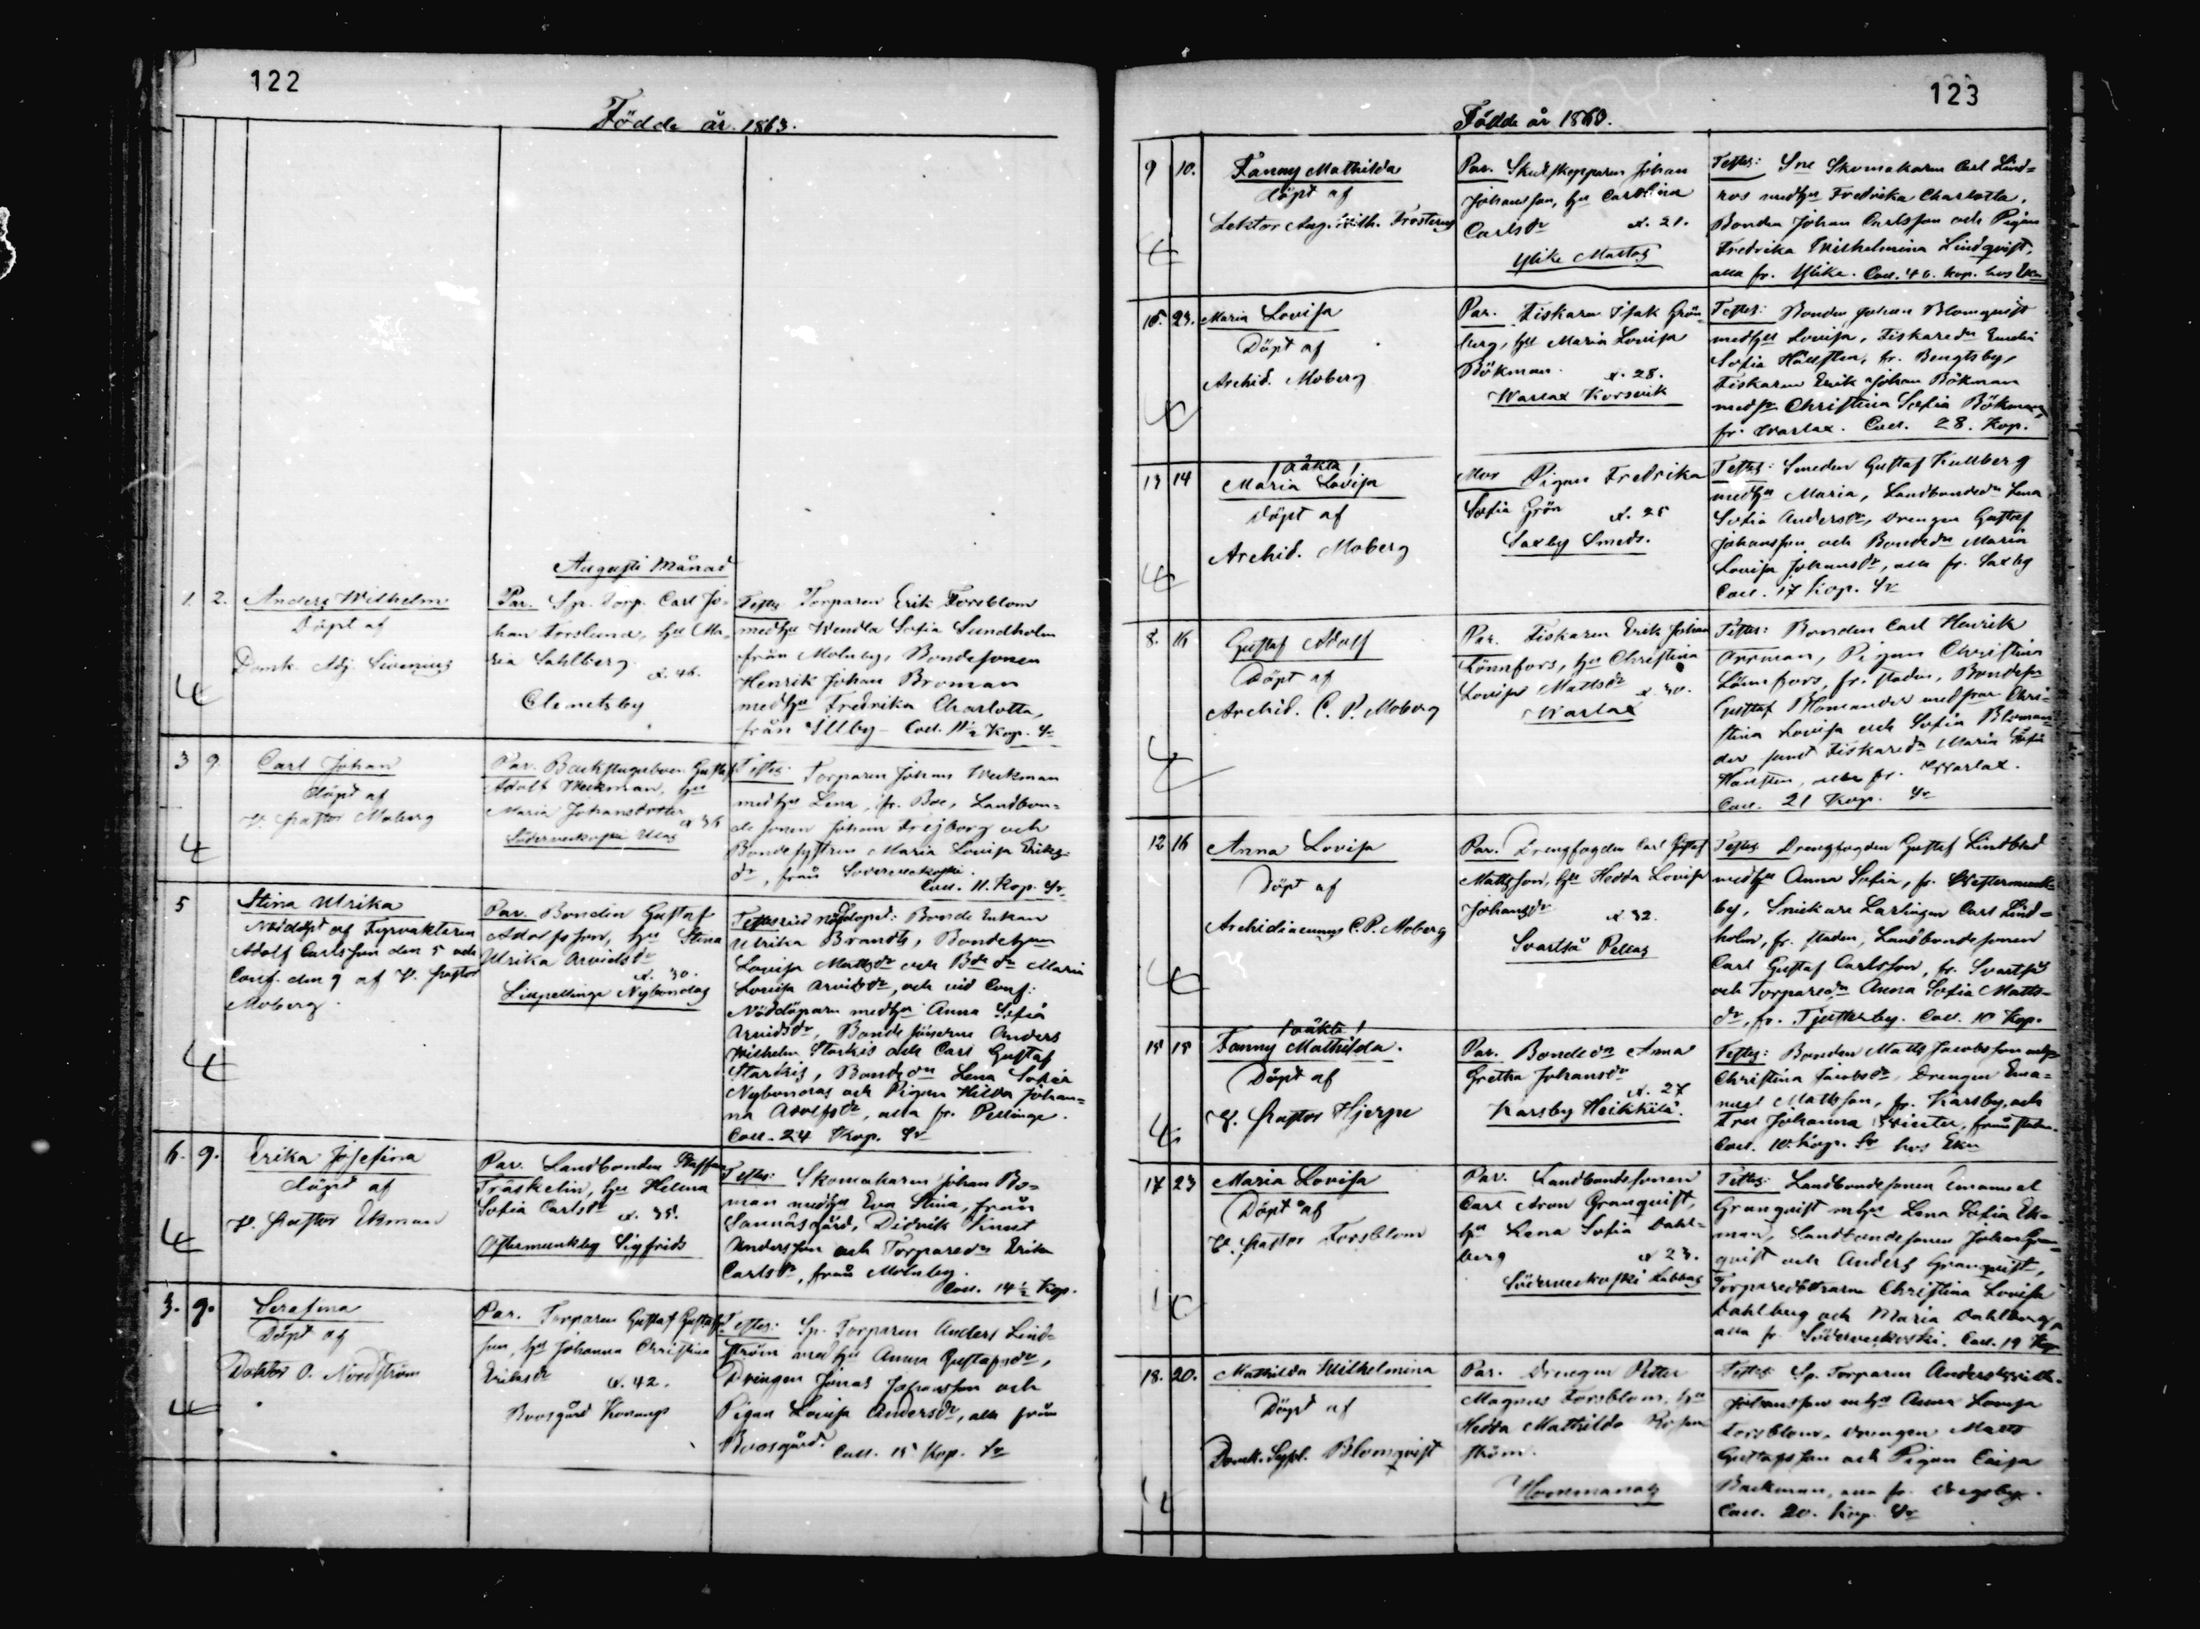 122
Födde år 1863.
Augusti Månad
1. 2. Anders Wilhelm
Döpt af
Domk. Adj. Sirenius
Par. Sp. Torp. Carl Jo-
han Forslund, hu Ma-
ria Sahlberg
å. 46.
Clemetsby
Testes Torparen Erik Forsblom
med hu Wendla Sofia Sundholm
från Molnby, Bondesonen
Henrik Johan Broman
med hu Fredrika Charlotta,
från Illby - Coll. 11½ Kop. Sr
3 9 Carl Johan
döpt af
V. Pastor Moberg
Par. Backstugubon Gustaf
Adolf Weckman, hu
Maria Johansdotter
å 36
Söderveckoski
Testes: Torparen Johan Weckman
med hu Lena, fr. Boe, Landbon-
de sonen Johan Frejborg och
Bondesystren Maria Lovisa Eriks-
dr, från Söderveckoski.
Coll. 11. Kop. Sr.
5 Stina Ulrika
Nöddöpt af Fyrvaktaren
Adolf Carlsson den 5 och
Conf. den 9 af V. Pastor
Moberg.
Par. Bonden Gustaf
Adolfsson, hu Stina
Ulrika Arvidsdr
å. 30.
Lillpellinge Nybondas
Testes vid nöddopet: Bonde Enkan
Ulrika Brandts, Bondehun
Lovisa Mattsdr och Bde dr Maria
Lovisa Arvidsdr, och vid Conf:
Nöddöparn med hu Anna Sofia
Arvidsdr, Bonde sönerne Anders
Wilhelm Starkis och Carl Gustaf
Starkis, Bondedn Lena Sofia
Nybondas och Pigan Hilda Johan-
na Adolfsdr, alla fr. Pellinge.
Coll. 24 Kop. Sr
6. 9. Erika Josefina
döpt af
V. Pastor Ekman
Par. Landbonden Staffan
Träskelin, hu Helena
Sofia Carlsdr
å. 35.
Östermunkby Sigfrids
Testes: Skomakaren Johan Bo-
man med hu Eva Stina, från
Sannäs gård, Didrik Knut
Andersson och Torparedn Erika
Carlsdr, från Molnby.
Coll. 14½ Kop.
3. 9. Serafina
Döpt af
Doktor O. Nordström
Par. Torparen Gustaf Gustafs-
son, hu Johanna Christina
Eriksdr
å. 42.
Boosgård
Testes: Sp. Torparen Anders Lind-
ström med hu Anna Gustafsdr,
Drengen Jonas Johansson och
Pigan Lovisa Andersdr, alla från
Boosgård. Coll. 15 Kop. Sr
123
Födde år 1863.
9 10. Fanny Mathilda
döpt af
Lektor Aug. Wilh. Frosterus
Par. Skutskepparen Johan
Johansson, hu Carolina
Carlsdr å. 21.
Ylike Mattas
Testes: Sne Skomakaren Carl Lind-
ros med hu Fredrika Charlotta,
Bonden Johan Carlsson och Pigan
Fredrika Wilhelmina Lindqvist,
alla fr. Ylike. Coll. 46. kop. hos
15. 23. Maria Lovisa
Döpt af
Archid. Moberg
Par. Fiskaren Isak Grön-
berg, hu Maria Lovisa
Bökman. å. 28.
Warlax Korsvik
Testes: Bonden Johan Blomqvist
med hu Lovisa, Fiskaredn Emelia
Sofia Hällsten, fr. Bengtsby,
Fiskaren Erik Johan Bökman
med sr Christina Sofia Bökman,
fr. Warlax. Coll. 28. Kop.
13 14 / oäkta /
Maria Lovisa
döpt af
Archid. Moberg
Mor Pigan Fredrika
Sofia Grön å. 25
Saxby Smeds.
Testes: Smeden Gustaf Kullberg
med hu Maria, Landbondedn Lena
Sofia Andersdr, drengen Gustaf
Johansson och Bondedn Maria
Lovisa Johansdr, alla fr. Saxby
Coll. 17 Kop. Sr
8. 16 Gustaf Adolf
Döpt af
Archid. C. P. Moberg
Par. Fiskaren Erik Johan
Lönnfors, hu Christina
Lovisa Mattsdr å. 30.
Warlax
Testes: Bonden Carl Henrik
Orrman, Pigan Christina
Lönnfors, fr. staden, Bondesn
Gustaf Blomander med srar Chri-
stina Lovisa och Sofia Bloman-
der samt Fiskaredn Maria Sofia
Hällsten, alla fr. Warlax.
Coll. 21 Kop. Sr
12 16 Anna Lovisa
Döpt af
Archidiaconus C. P. Moberg
Par. Drengfogden Carl Gustaf
Mattsson, hu Hedda Lovisa
Johansdr
å 32.
Svartså Pellas
Testes Drengfogden Gustaf Lindblad
med hu Anna Sofia, fr. Westermunk-
by, Snickare Lärlingen Carl Lind-
holm, fr. staden, Landbondesonen
Carl Gustaf Carlsson, fr. Svartså
och Torparedn Anna Sofia Matts-
dr, fr. Tjusterby. Coll. 10 Kop.
15 15 / oäkta /
Fanny Mathilda.
Döpt af
V. Pastor Hjerpe
Par. Bondedn Anna
Gretha Johansdr
å. 27
Karsby Heikkilä.
Testes: Bonden Matts Jacobsson och
Christina Jacobsdr, Drengen Ema-
nuel Mattsson, fr. Karsby, och
Fru Johanna från staden.
Coll. 10. Kop. Sr hos Ekn
17 23 Maria Lovisa
Döpt af
V. Pastor Forsblom
Par. Landbondesonen
Carl Aron Granqvist,
hu Lena Sofia Dahl-
berg å 23.
Söderveckoski Labbas
Testes: Landbondesonen Emanuel
Granqvist m hu Lena Sofia Ek-
man, Landbondesonen Johan Gran-
qvist och Anders Granqvist,
Torparedöttrarna Christina Lovisa
Dahlberg och Maria Dahlberg,
alla fr. Söderveckoski. Coll. 19 Kop
18. 20. Mathilda Wilhelmina
Döpt af
Domk. Syssl. Blomqvist
Par. Drengen Petter
Magnus Forsblom, hu
Hedda Mathilda Rosen
ström.
Hommanas
Testes: Sp. Torparen Anders Wilh.
Johansson m hu Anna Lovisa
Forsblom, drengen Matts
Gustafsson och Pigan Caisa
Backman, alla fr. Drägsby.
Coll. 20. Kop. Sr